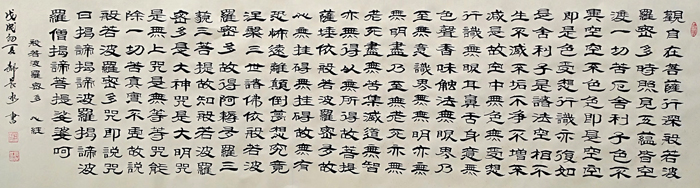 觀自在菩薩行深般若波
羅蜜多時照見五蘊皆空
渡一切苦厄舍利子色不
異空空不異色色即是空空
即是色受想行識亦復如
是舍利子是諸法空相不
生不滅不垢不淨不增不
減是故空中無色無受想
行識無眼耳鼻舌身意無
色聲香味觸法無眼界乃
至無意識界無無明亦無
無明盡乃至無老死亦無
老死盡無苦集滅道無智
亦無得以無所得故菩提
薩埵依般若波羅蜜多故
心無罣礙無罣礙故無有
恐怖遠離顛倒夢想究竟
涅槃三世諸佛依般若波
羅蜜多故得阿耨多羅三
藐三菩提故知般若波羅
蜜多是大神咒是大明咒
是無上咒是無等等咒能
除一切苦真實不虛故說
般若波羅蜜多咒即說咒
曰揭諦揭諦波羅揭諦波
羅僧揭諦菩提娑婆呵
般若波羅蜜多心經
戊戌初夏郝長書